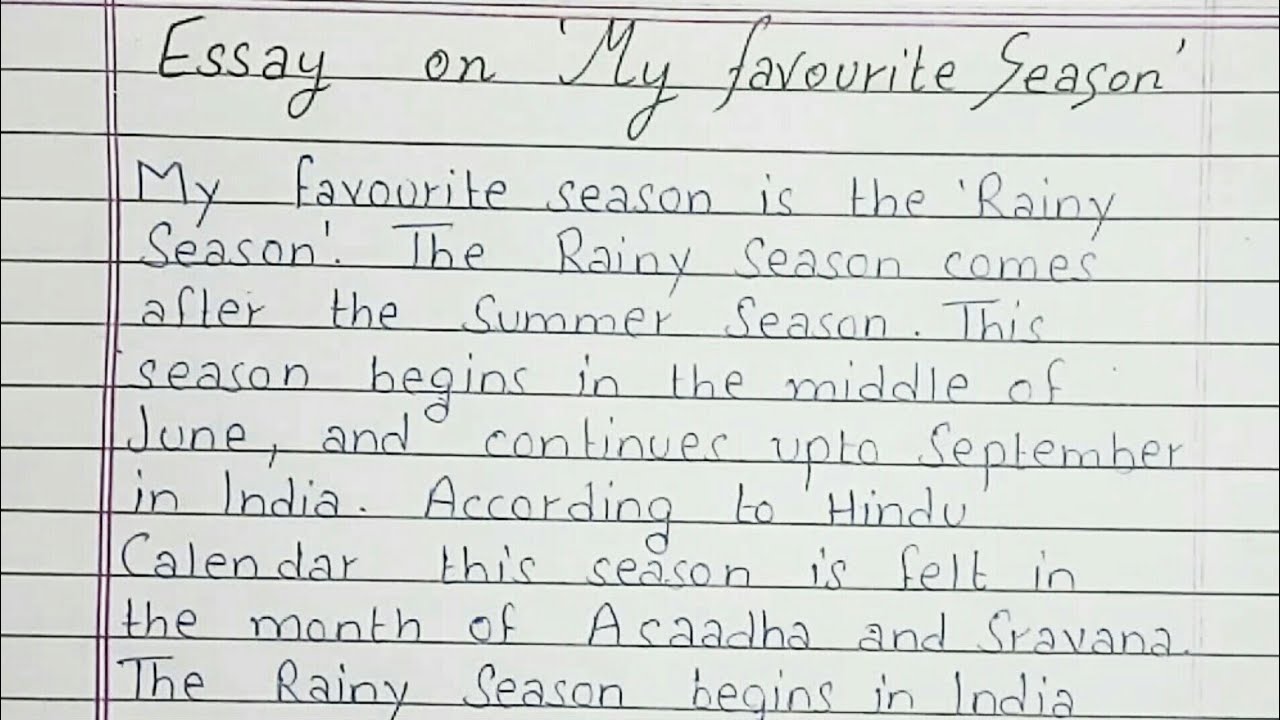 Essay on 'My favourite Season'
My favourite season is the 'Rainy
Season'. The Rainy Season comes
after the Summer Season. This
season begins in the middle of
June, and continues upto September
in India. According to Hindu
Calendar this season is felt in
the month of Asaadha and Sravana.
The Rainy Season begins in India